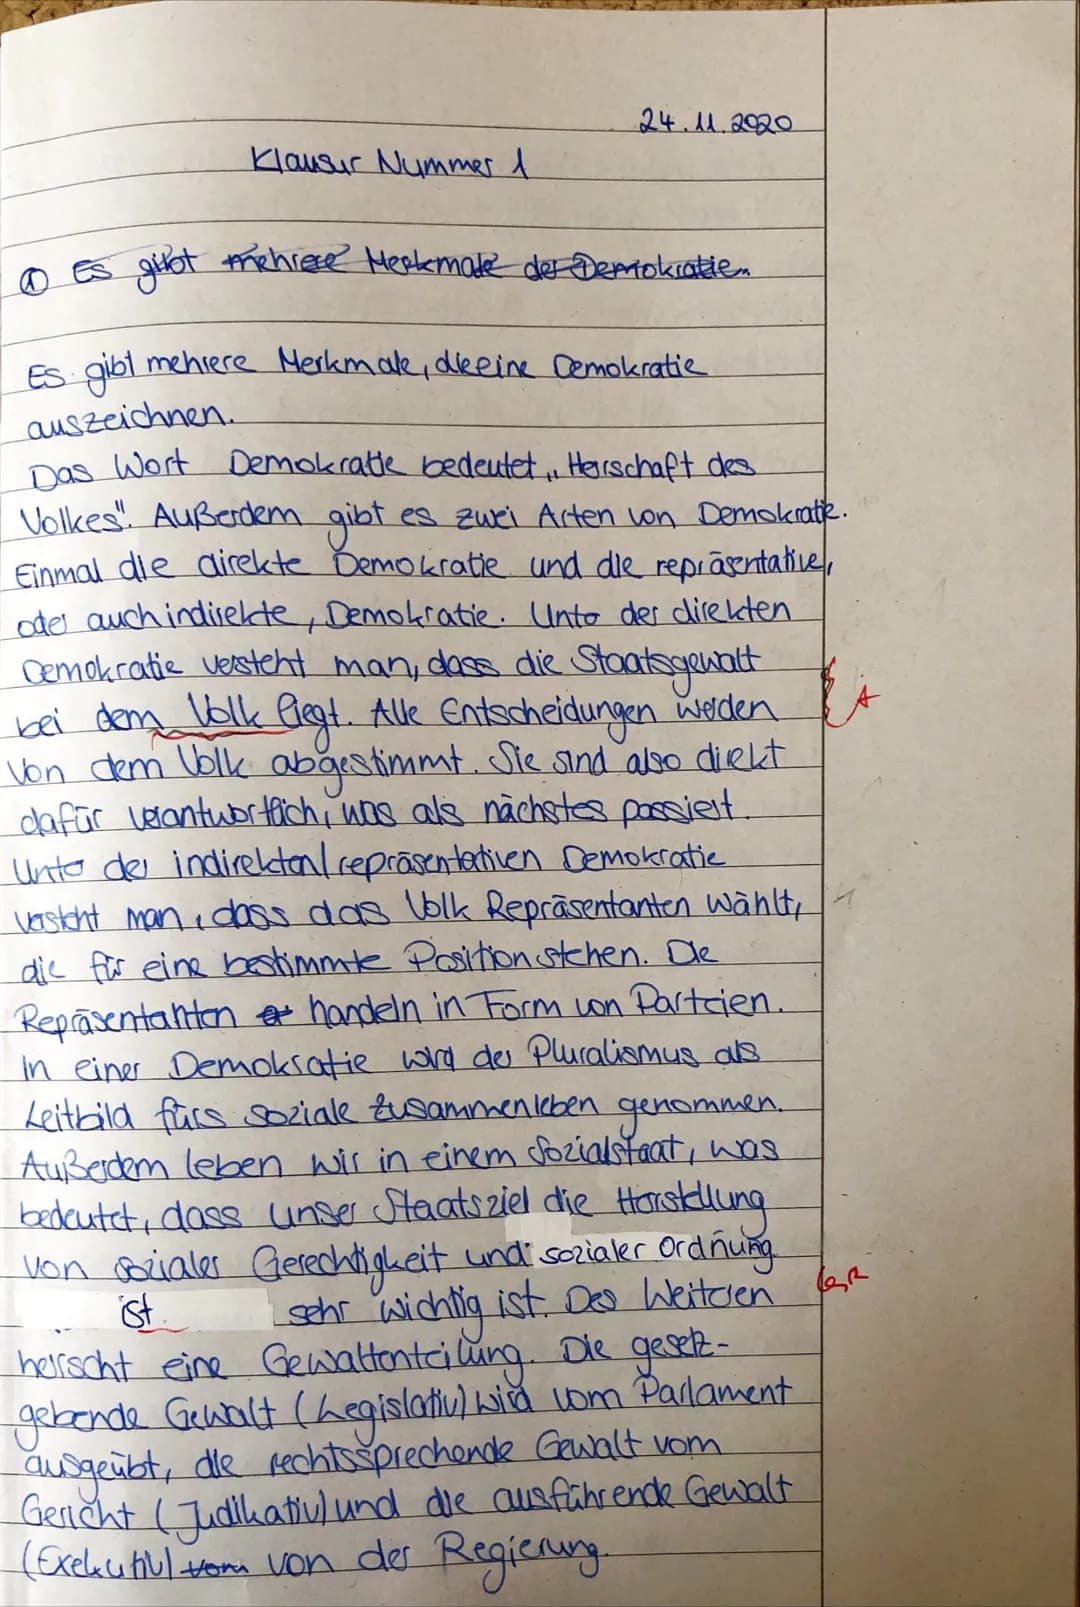 24.11.2020
Klausur Nummer 1
① Es gibt mehrere Merkmale der Demokratie.
Es gibt mehrere Merkmale, die eine Demokratie
auszeichnen.
Das Wort Demokratie bedeutet „Herrschaft des
Volkes". Außerdem gibt es zwei Arten von Demokratie.
Einmal die direkte Demokratie und die repräsentative,
oder auch indirekte, Demokratie. Unter der direkten
Demokratie versteht man, dass die Staatsgewalt
bei dem Volk liegt. Alle Entscheidungen werden
A
von dem Volk abgestimmt. Sie sind also direkt
dafür verantwortlich, was als nächstes passiert.
Unter der indirekten/repräsentativen Demokratie
versteht man, dass das Volk Repräsentanten wählt,
die für eine bestimmte Position stehen. Die
Repräsentanten handeln in Form von Parteien.
In einer Demokratie wird der Pluralismus als
Leitbild fürs soziale Zusammenleben genommen.
Außerdem leben wir in einem Sozialstaat, was
bedeutet, dass unser Staatsziel die Herstellung
von sozialer Gerechtigkeit und sozialer Ordnung
ist. sehr wichtig ist. Des Weiteren
herrscht eine Gewaltenteilung. Die gesetz-
gebende Gewalt (Legislativ) wird vom Parlament
ausgeübt, die rechtssprechende Gewalt vom
Gericht (Judikativ) und die ausführende Gewalt
(Exekutiv) vom von der Regierung.